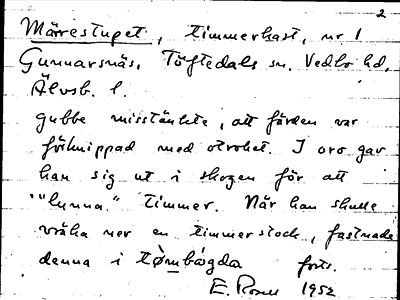 2
Märrestupet, timmerkast, nr 1
Gunnarsnäs, Töftedals sn. Vedbo hd,
Älvsb. l.
gubbe misstänkte, att färden var
förknippad med otrohet. I oro gav
han sig ut i skogen för att
"lunna" timmer. När han skulle
vräka ner en timmerstock, fastnade
denna i tømbågda forts.
E. Rosell 1952